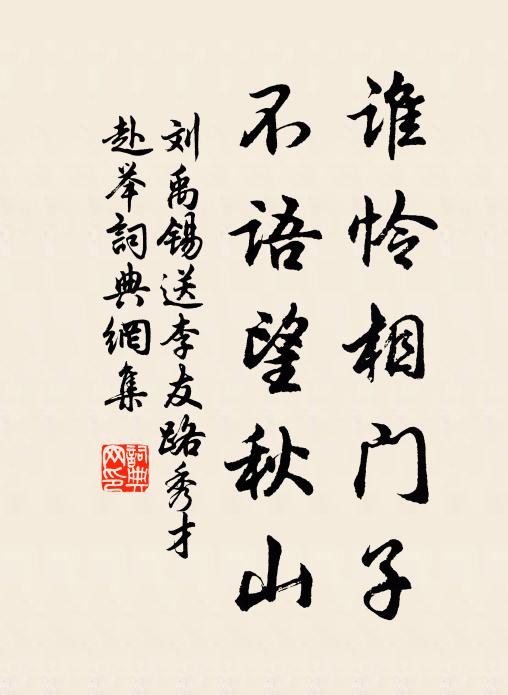 谁怜相门子
不语望秋山
刘禹锡送李友路秀才
赴举词典網集
詞典网印